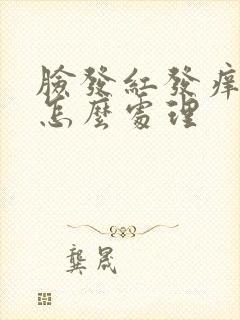 臉發紅發痒
怎麼處理
龔晟